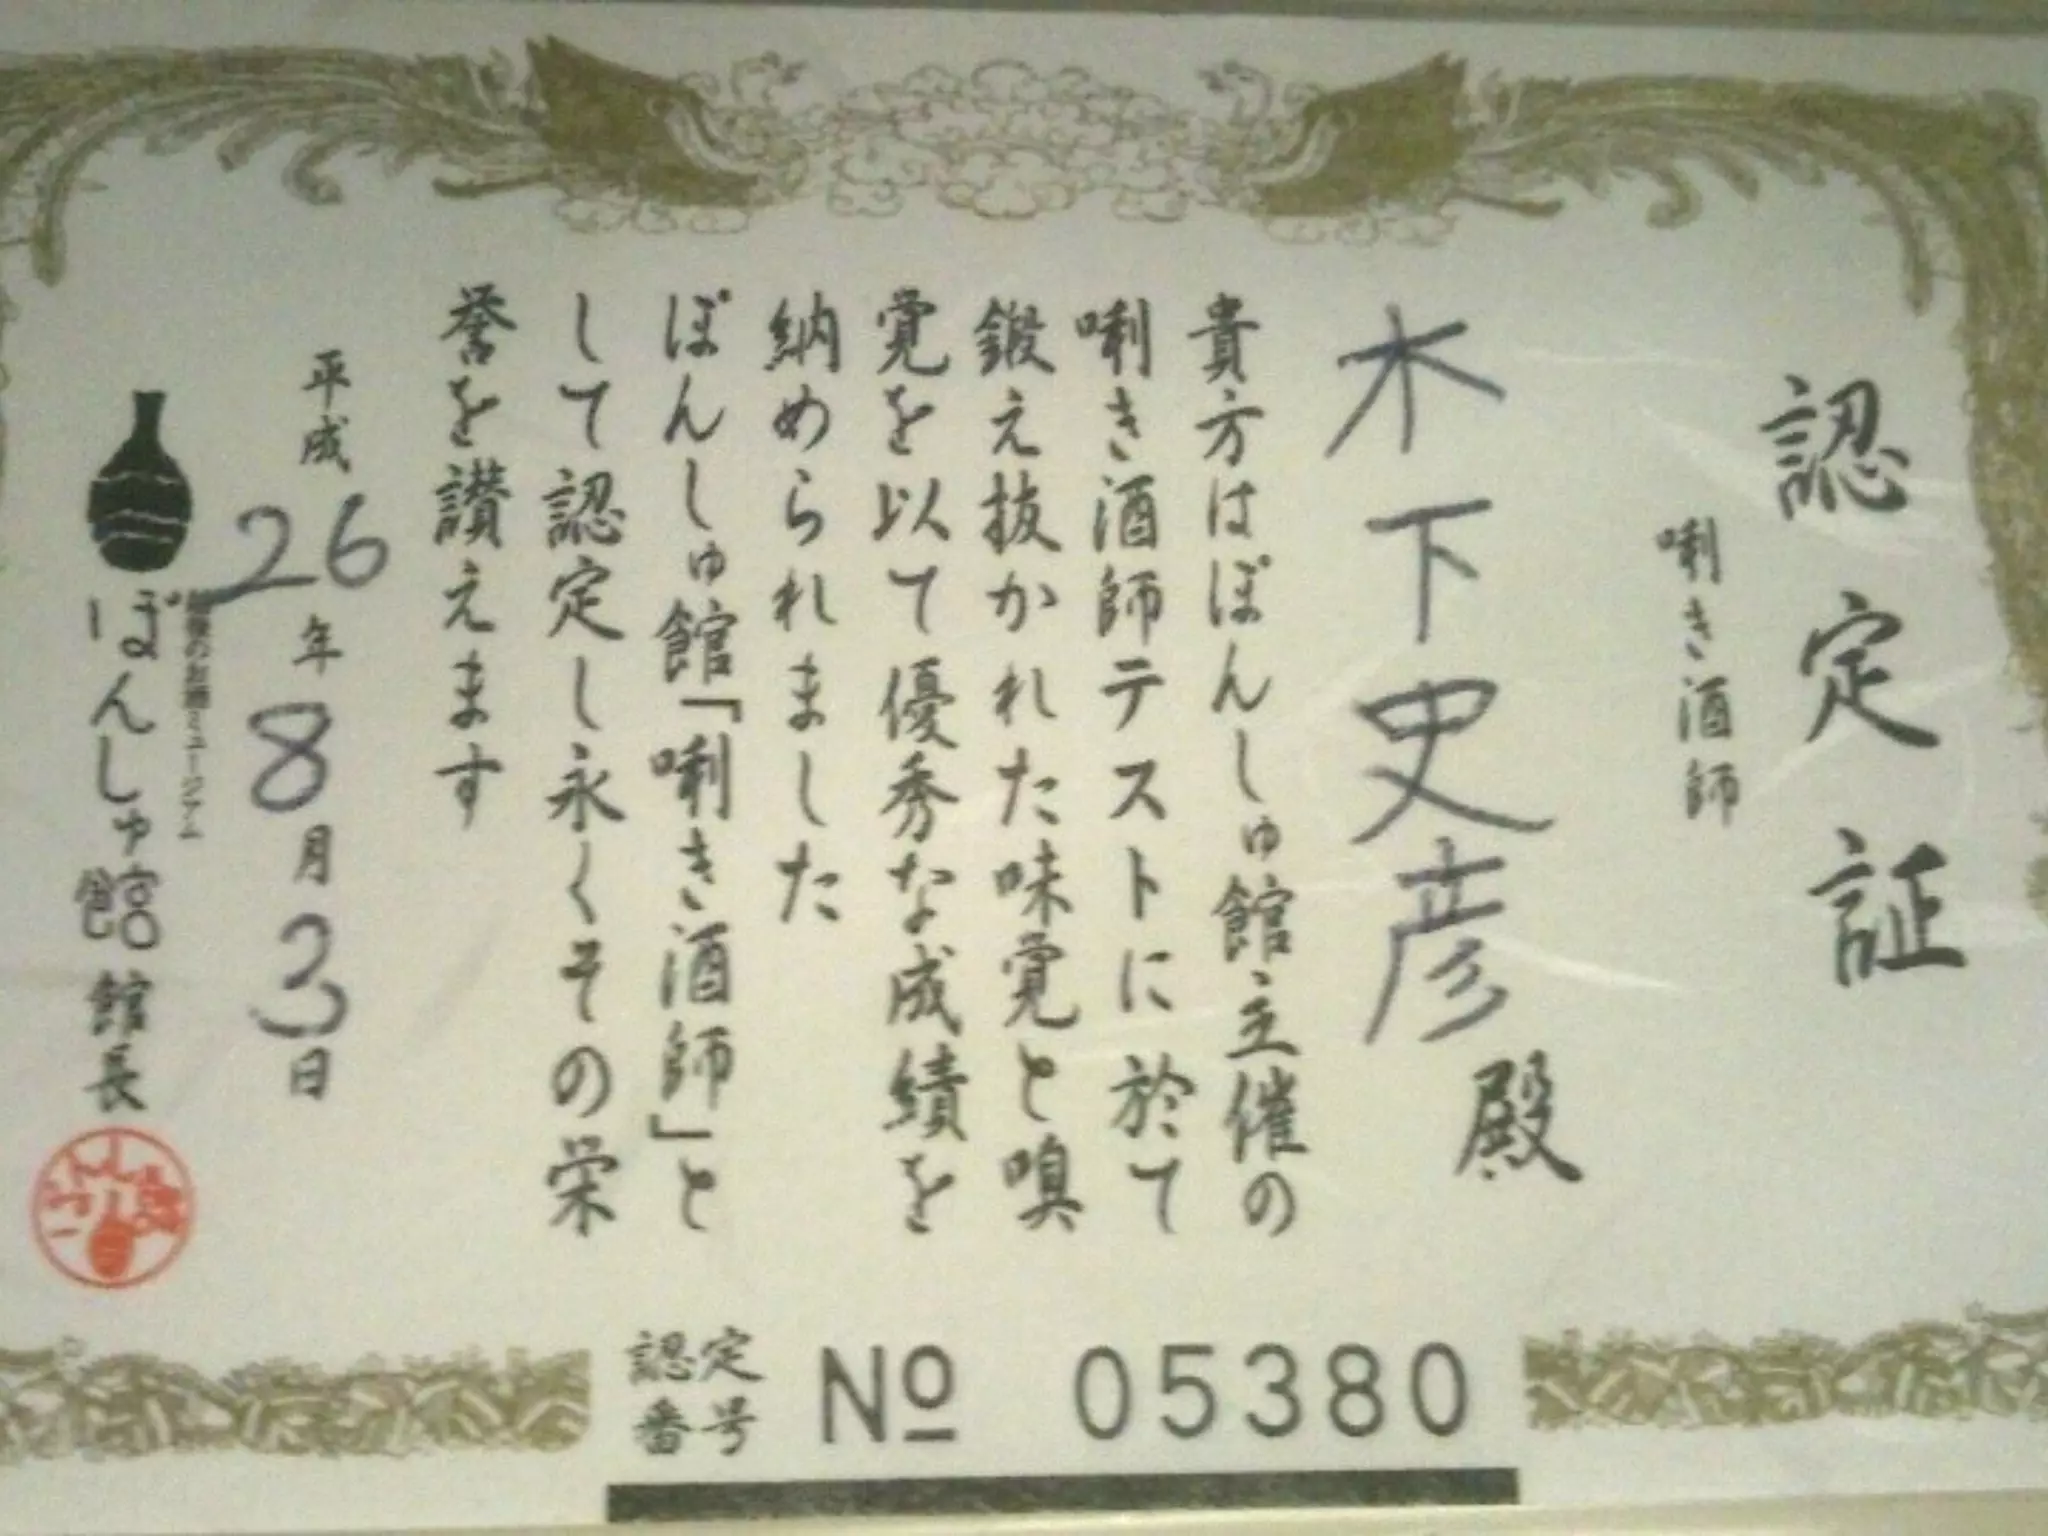 認定証
唎き酒師
木下史彦殿
貴方はぽんしゅ館主催の
唎き酒師テストに於て
鍛え抜かれた味覚と嗅
覚を以て優秀な成績を
納められました
ぽんしゅ館「唎き酒師」と
して認定し永くその栄
誉を讃えます
平成26年8月3日
越後のお酒ミュージアム
ぽんしゅ館館長
認定
番号
№ 05380